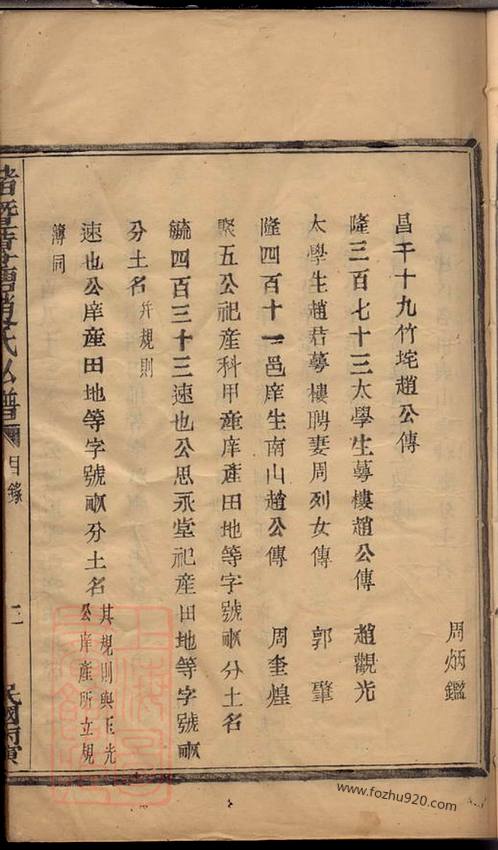 昌千十九竹垞趙公傳　周炳鑑
隆三百七十三太學生蓴樓趙公傳　趙觀光
太學生趙君蓴樓聘妻周列女傳　郭肇
隆四百十一邑庠生南山趙公傳　周奎煌
聚五公祀產科甲產庠產田地等字號畝分土名
毓四百三十三速也公思永堂祀產田地等字號畝
分土名并規則
速也公庠產田地等字號畝分土名其規則與正光公庠產所立規
簿同
趙氏 譜 目錄 三 民國丙寅
www.fozhu920.com